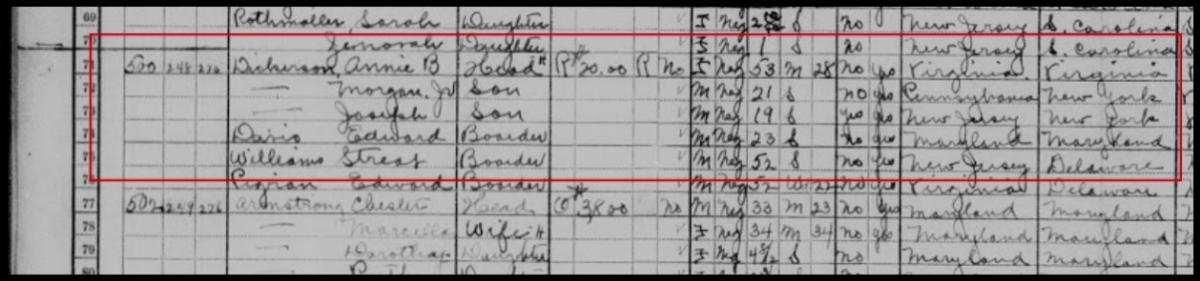 69 Rothmaller Sarah Daughter F Neg 2 S no New Jersey S. Carolina
Zenorah Daughter F Neg 1 S no New Jersey S. Carolina
71 500 248 276 Dickerson Annie B Head H R 20.00 R No F Neg 53 M 28 No yes Virginia Virginia
72 — Morgan Jr Son M Neg 21 S no yes Pennsylvania New York
— Joseph Son M Neg 19 S yes yes New Jersey New York
74 Davis Edward Boarder M Neg 23 S no yes Maryland Maryland
Williams Streat Boarder M Neg 52 S no yes New Jersey Delaware
Edward Boarder M Neg 52 W 22 no yes Virginia Delaware
77 502 276 Armstrong Chester Head O 3800 no M Neg 33 M 23 no yes Maryland Maryland
78 — Marcella Wife H F Neg 34 M 34 no yes Maryland Maryland
79 — Daughter F Neg S no Maryland Maryland
80